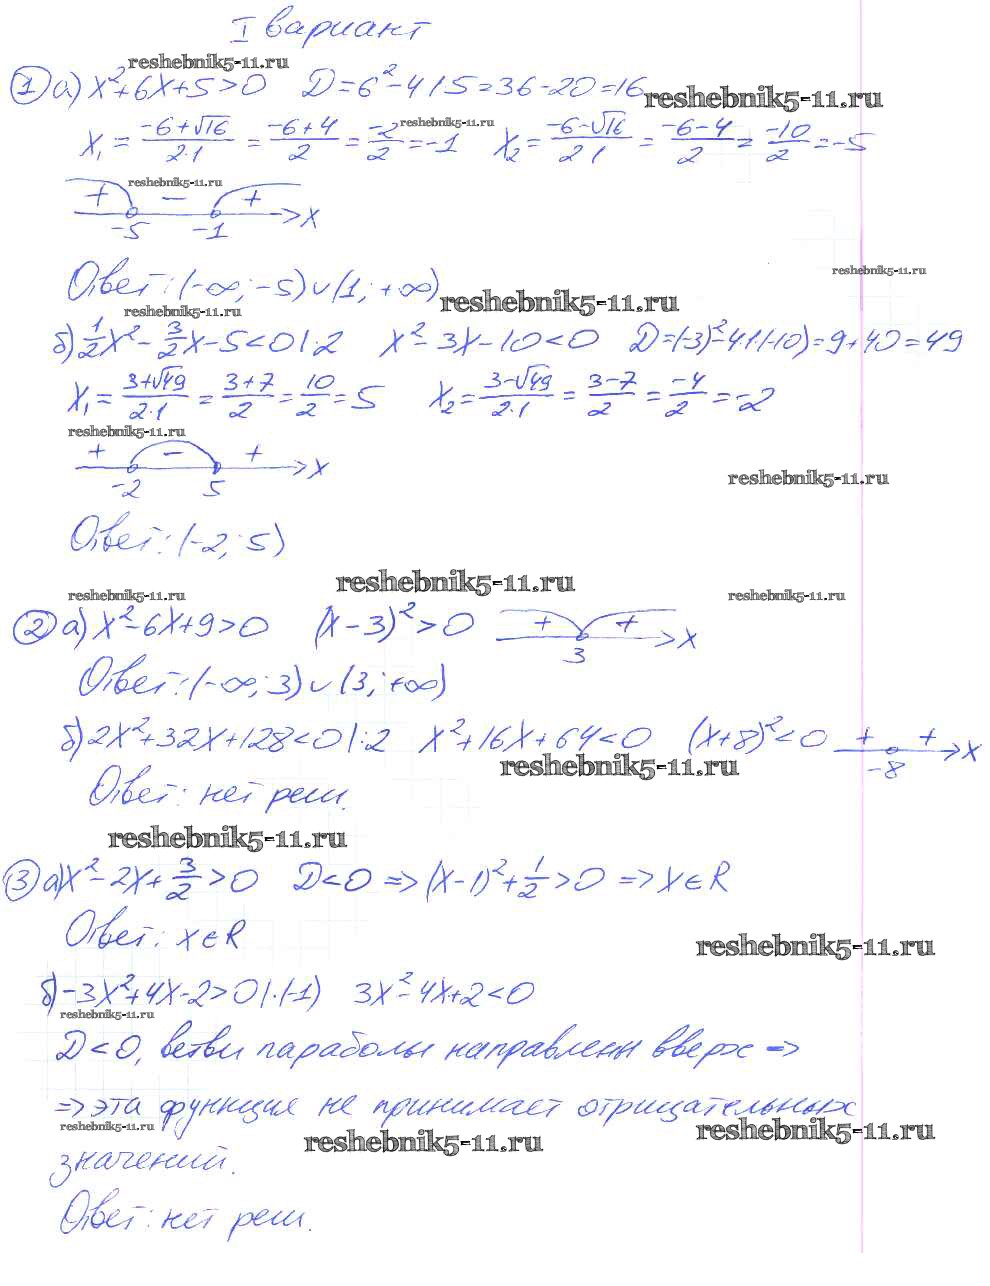 I вариант
reshebnik5-11.ru
① а) x²+6x+5>0 D=6²-4·1·5=36-20=16
reshebnik5-11.ru
x₁ = (-6+√16)/(2·1) = (-6+4)/2 = -2/2 = -1 x₂ = (-6-√16)/(2·1) = (-6-4)/2 = -10/2 = -5
reshebnik5-11.ru
reshebnik5-11.ru
+ - + x
-5 -1
reshebnik5-11.ru
Ответ: (-∞; -5)∪(1; +∞)
reshebnik5-11.ru
reshebnik5-11.ru
б) 1/2x² - 3/2x - 5<0 |·2 x²-3x-10<0 D=(-3)²-4·1·(-10)=9+40=49
x₁ = (3+√49)/(2·1) = (3+7)/2 = 10/2 = 5 x₂ = (3-√49)/(2·1) = (3-7)/2 = -4/2 = -2
reshebnik5-11.ru
+ - + x
-2 5
reshebnik5-11.ru
Ответ: (-2; 5)
reshebnik5-11.ru
reshebnik5-11.ru
reshebnik5-11.ru
② а) x²-6x+9>0 (x-3)²>0 + + x
3
Ответ: (-∞; 3)∪(3; +∞)
б) 2x²+32x+128<0 |:2 x²+16x+64<0 (x+8)²<0 + + x
-8
reshebnik5-11.ru
Ответ: нет реш.
reshebnik5-11.ru
③ а) x²-2x+3/2>0 D<0 => (x-1)²+1/2>0 => x∈R
Ответ: x∈R
reshebnik5-11.ru
б) -3x²+4x-2>0 |·(-1) 3x²-4x+2<0
reshebnik5-11.ru
D<0, ветви параболы направлены вверх =>
=> эта функция не принимает отрицательных
reshebnik5-11.ru
reshebnik5-11.ru
reshebnik5-11.ru
значений.
Ответ: нет реш.